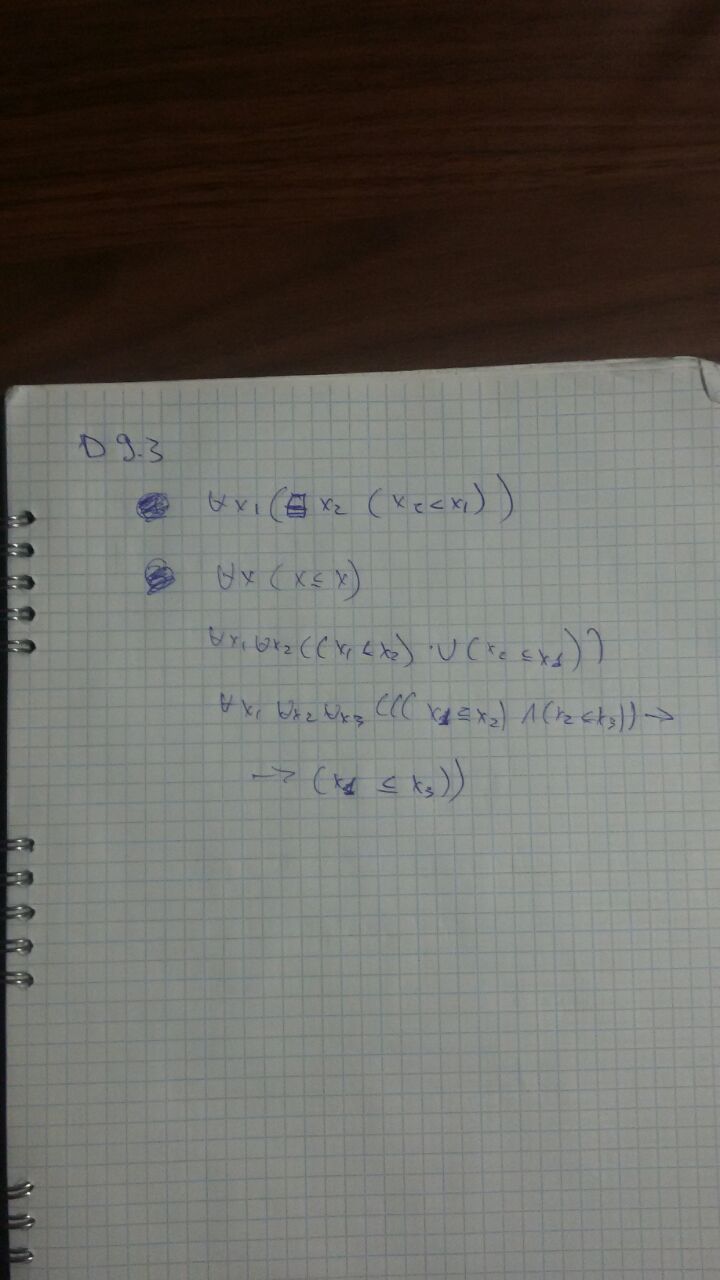 D 9.3
∀x₁(∃x₂ (x₂<x₁))
∀x (x≤x)
∀x₁∀x₂((x₁≤x₂) ∨(x₂≤x₁))
∀x₁ ∀x₂ ∀x₃ (((x₁≤x₂) ∧(x₂≤x₃))→
→ (x₁ ≤ x₃))